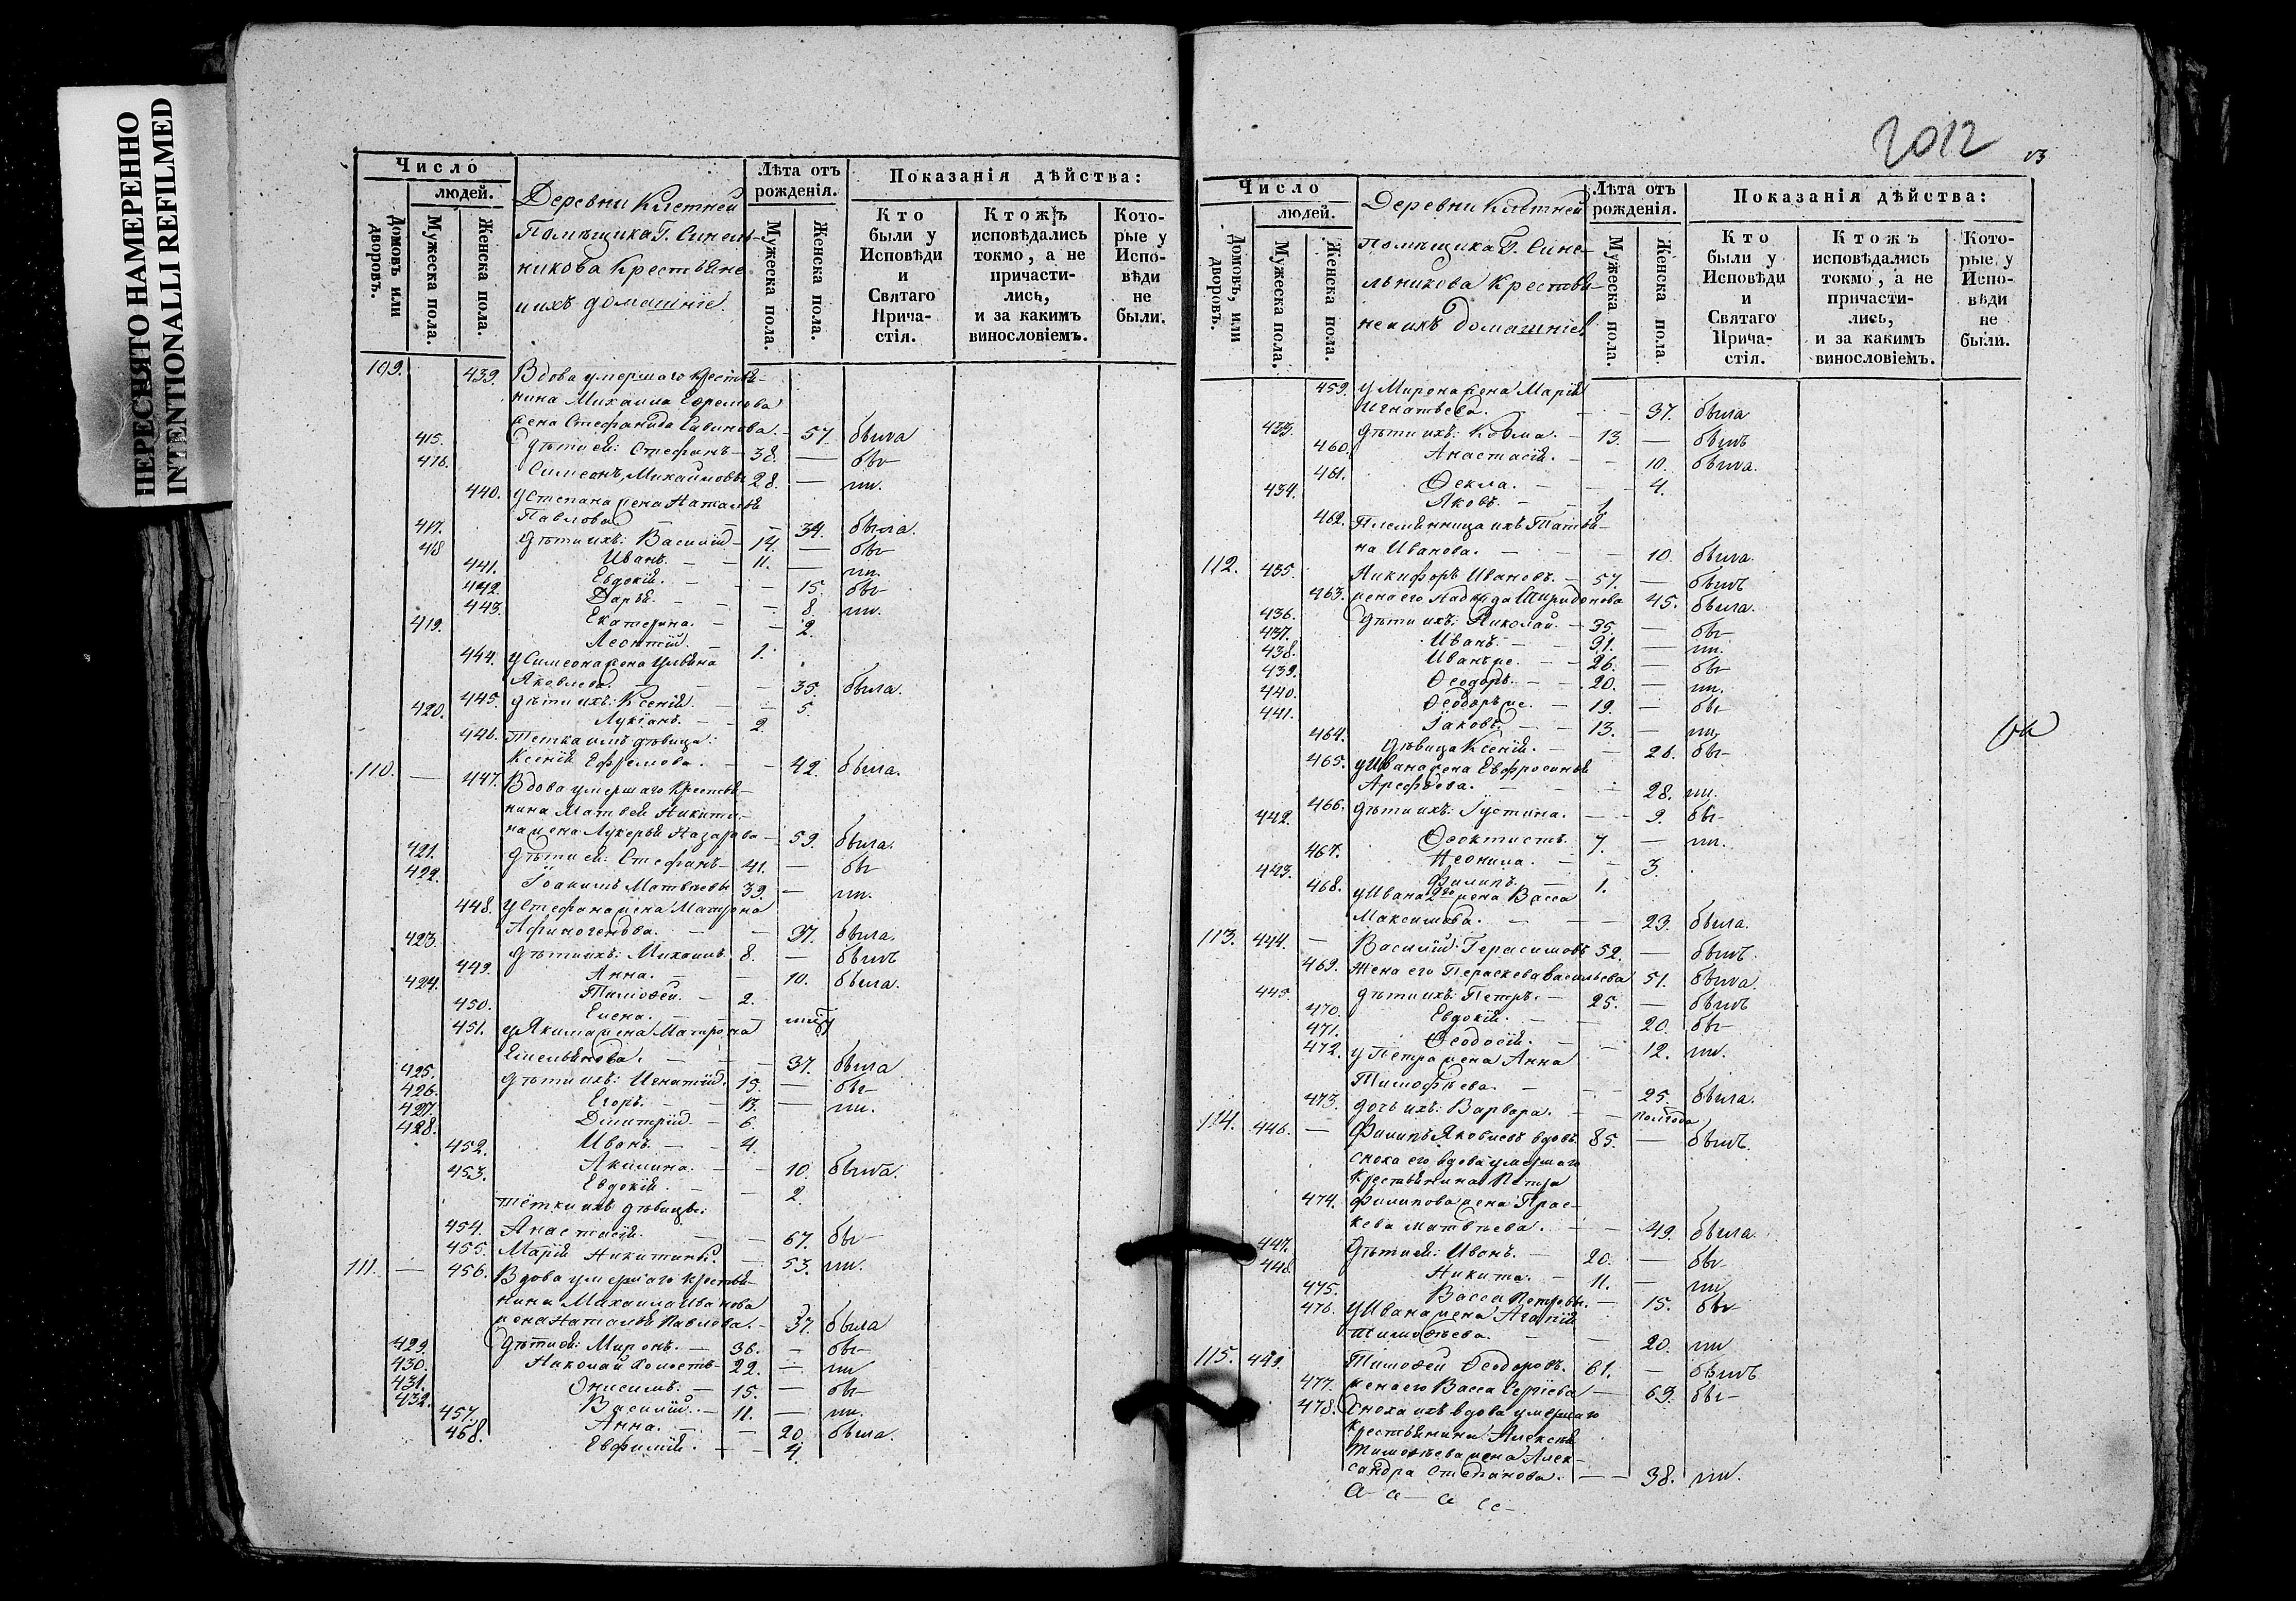 ПЕРЕСНЯТО НАМЕРЕННО
INTENTIONALLI REFILMED
Число
людей.
Домовъ или дворовъ.
Мужеска пола.
Женска пола.
Деревни Клетней
Помѣщика Г. Синель-
никова Крестьяне
и ихъ домашніе.
Лѣта отъ рожденія.
Мужеска пола.
Женска пола.
Показанія дѣйства:
Кто были у Исповѣди и Святаго Прича-стія.
Ктожъ исповѣдались токмо, а не причасти-лись, и за какимъ винословіемъ.
Кото-рые у Испо-вѣди не были.
109. 439. Вдова умершаго крестья-
нина Михаила Ефремова
жена Стефанида Савинова. 57. была
415. дѣти ей: Стефанъ 38. — бы-
416. Симеонъ Михайловы 28. — ли.
440. у Степана жена Наталья
Павлова 34. была.
417. дѣти ихъ: Василій 14. — бы-
418 Иванъ. 11. — ли.
441. Евдокія. 15. бы-
442. Дарья. 8. ли.
443. Екатерина. 2.
419. Леонтій. 1.
444. у Симеона жена Ульяна
Яковлева. 35. была.
445. дѣти ихъ: Ксенія. 5.
420. Лукіанъ. 2.
446. Тетка имъ дѣвица:
Ксенія Ефремова. 42. была.
110. — 447. Вдова умершаго Крестья-
нина Матвея Никити-
на жена Лукерья Назарова 59. была.
421. дѣти ей: Стефанъ 41. — бы-
422. Іоакимъ Матвѣевы 39. — ли.
448. у Стефана жена Матрона
Афиногенова. 37. была.
423. дѣти ихъ: Михаилъ 8. — былъ
449. Анна. 10. была.
424. Тимофей. 2.
450. Елена.
451. у Якима жена Матрона
Емельянова. 37. была
425. дѣти ихъ: Игнатій. 15. — бы-
426. Егоръ. 13. — ли.
427. Димитрій 6.
428. Иванъ. 4.
452. Акилина. 10. была.
453. Евдокія. 2.
тётки ихъ дѣвицы:
454. Анастасія. 67. бы-
455. Марія Никитины. 53. ли.
111. — 456. Вдова умершаго крестья-
нина Михаила Иванова
жена Наталья Павлова. 37. была
429. дѣти ей: Миронъ. 36. - бы-
430. Николай холостъ 22. — ли
431. Онисимъ. 15. — бы-
432. Василій. 11. — ли.
457. Анна. 20. была.
458. Евфимія. 4.
2012
Число
людей.
Домовъ, или дворовъ.
Мужеска пола.
Женска пола.
Деревни Клетней
помѣщика Г. Сине-
льникова Крестья-
не и ихъ домашніе
Лѣта отъ рожденія.
Мужеска пола.
Женска пола.
Показанія дѣйства:
Кто были у Исповѣди и Святаго Прича-стія.
Ктожъ исповѣдались токмо, а не причасти-лись, и за какимъ винословіемъ.
Кото-рые у Испо-вѣди не были.
459. у Мирона жена Марія
Игнатьева. 37. была
433. дѣти ихъ: Козма. 13. — былъ
460. Анастасія. 10. была.
461. Фекла. 4.
434. Яковъ. 1
462. Племянница ихъ Татья-
на Иванова. 10. была.
112. 435. Никифоръ Ивановъ. 57. — былъ
463. жена его Спиридонова 45. была.
436. дѣти ихъ: Николай. 35. — бы-
437. Иванъ. 31. — ли.
438. Иванъ же. 26. — бы-
439. Ѳеодоръ. 20. — ли.
440. Ѳеодоръ же. 19. — бы-
441. Іаковъ. 13. — ли
464. дѣвица Ксенія. 26. бы-
465. у Ивана жена Евфросинья
Арефьева. 28. ли.
466. дѣти ихъ: Іустина. 9. бы-
442. Ѳеоктистъ. 7. — ли.
467. Неонила. 3.
443. Филипъ. 1.
468. у Ивана 2го жена Васса
Максимова. 23. была.
113. 444. — Василій Герасимовъ 52. — былъ.
469. Жена его Пераскева Васильева 51. была.
445. дѣти ихъ: Петръ. 25. — былъ
470. Евдокія. 20. бы-
471. Ѳеодосія. 12. ли.
472. у Петра жена Анна
Тимофѣева. 25. была.
473. дочь ихъ: Варвара. полгода
114. 446. — Филипъ Яковлевъ вдовъ 85. — былъ.
сноха его вдова умершаго
Крестьянина Петра
474. Филипова жена Прас-
кева Матвѣева. 49. была.
447. дѣти ей: Иванъ. 20. — бы-
448. Никита. 11. — ли
475. Васса Петровы. 15. бы-
476. у Ивана жена Агапія
Тимофѣева. 20. ли
115. 449. Тимофей Ѳеодоровъ. 61. — былъ
477. жена его Васса Сергіева 63. бы-
478. Сноха ихъ вдова умершаго
крестьянина Алексѣя
Тимофѣева жена Алек-
сандра Степанова. 38. ли.